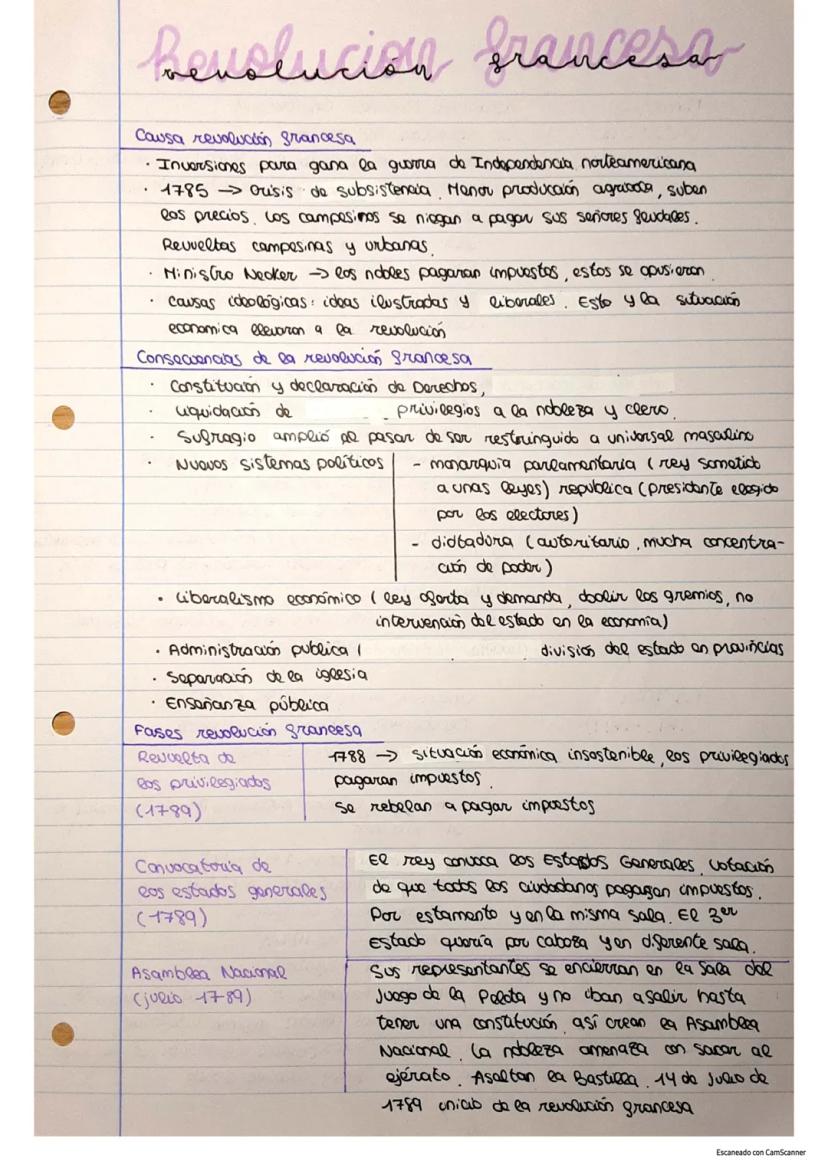 Revolucion francesa
revolución francesa
Causa revolución francesa
· Inversiones para gana la guerra de Independencia norteamericana
· 1785 → crisis de subsistencia. Menor producción agrícola, suben
los precios. Los campesinos se niegan a pagar sus señores feudales.
Revueltas campesinas y urbanas.
· Ministro Necker → los nobles pagaran impuestos, estos se opusieron
· causas ideológicas: ideas ilustradas y liberales. Esto y la situación
economica llevaron a la revolución
Consecuencias de la revolución francesa
· Constitución y declaración de Derechos,
· Liquidación de privilegios a la nobleza y clero.
· Sufragio amplió al pasar de ser restringuido a universal masculino
· Nuevos sistemas políticos
- monarquía parlamentaria (rey sometido
a unas leyes) republica (presidente elegido
por los electores)
- dictadura (autoritario, mucha concentra-
ción de poder)
· Liberalismo económico (ley oferta y demanda, abolir los gremios, no
intervención del estado en la economía)
· Administración publica ( división del estado en provincias
· Separación de la iglesia
· Enseñanza pública
Fases revolución francesa
Revuelta de
los privilegiados
(1789)
1788 → situación económica insostenible, los privilegiados
pagaran impuestos.
Se rebelan a pagar impuestos
Convocatoria de
los estados generales
(1789)
El rey convoca los Estados Generales. Votación
de que todos los ciudadanos pagagan impuestos.
Por estamento y en la misma sala. El 3er
Estado quería por cabeza y en diferente sala.
Asamblea Nacional
(julio 1789)
Sus representantes se encierran en la Sala del
Juego de la Pelota y no iban a salir hasta
tener una constitución, así crean la Asamblea
Nacional. La nobleza amenaza con sacar al
ejército. Asaltan la Bastilla. 14 de Julio de
1789 inicio de la revolución francesa
Escaneado con CamScanner